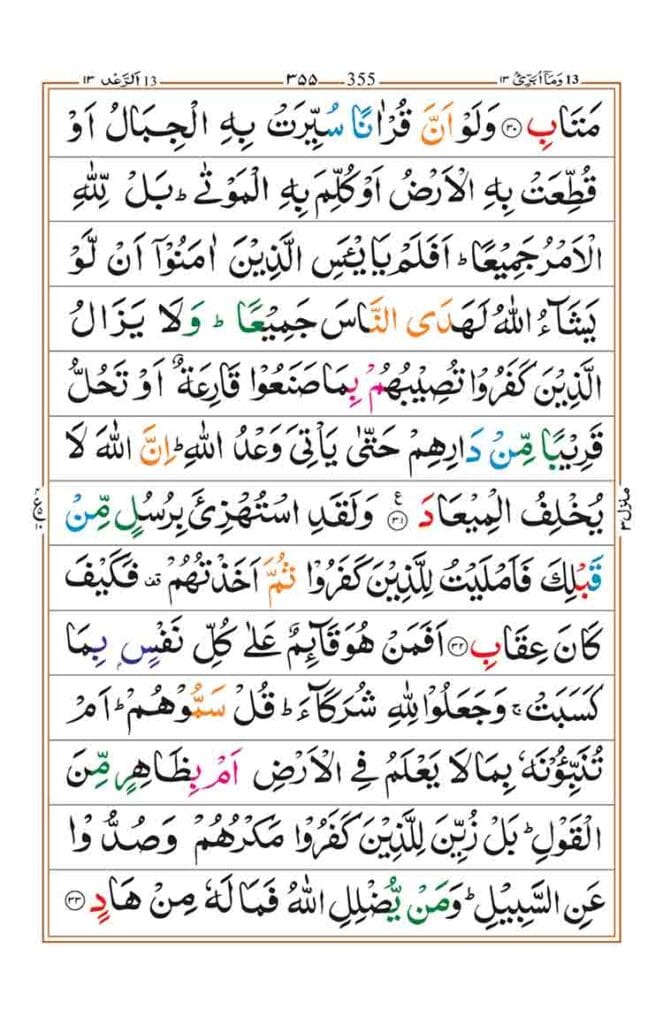 13 وَمَآ اُبَرِّئُ ١٣ 355 ٣٥٥ 13 اَلرَّعْد ١٣
مَتَابِ ﴿٣٠﴾ وَلَوْ اَنَّ قُرْاٰنًا سُيِّرَتْ بِهِ الْجِبَالُ اَوْ
قُطِّعَتْ بِهِ الْاَرْضُ اَوْ كُلِّمَ بِهِ الْمَوْتٰى ؕ بَلْ لِّلّٰهِ
الْاَمْرُ جَمِيْعًا ؕ اَفَلَمْ يَا۟يْـَٔسِ الَّذِيْنَ اٰمَنُوْۤا اَنْ لَّوْ
يَشَآءُ اللّٰهُ لَهَدَى النَّاسَ جَمِيْعًا ؕ وَلَا يَزَالُ
الَّذِيْنَ كَفَرُوْا تُصِيْبُهُمْ بِمَا صَنَعُوْا قَارِعَةٌ اَوْ تَحُلُّ
قَرِيْبًا مِّنْ دَارِهِمْ حَتّٰى يَاْتِىَ وَعْدُ اللّٰهِ ؕ اِنَّ اللّٰهَ لَا
يُخْلِفُ الْمِيْعَادَ ﴿٣١﴾ ع وَلَقَدِ اسْتُهْزِئَ بِرُسُلٍ مِّنْ
قَبْلِكَ فَاَمْلَيْتُ لِلَّذِيْنَ كَفَرُوْا ثُمَّ اَخَذْتُهُمْ قف فَكَيْفَ
كَانَ عِقَابِ ﴿٣٢﴾ اَفَمَنْ هُوَ قَآئِمٌ عَلٰى كُلِّ نَفْسٍۭ بِمَا
كَسَبَتْ ۚ وَجَعَلُوْا لِلّٰهِ شُرَكَآءَ ؕ قُلْ سَمُّوْهُمْ ؕ اَمْ
تُنَبِّـُٔوْنَهٗ بِمَا لَا يَعْلَمُ فِى الْاَرْضِ اَمْ بِظَاهِرٍ مِّنَ
الْقَوْلِ ؕ بَلْ زُيِّنَ لِلَّذِيْنَ كَفَرُوْا مَكْرُهُمْ وَصُدُّوْا
عَنِ السَّبِيْلِ ؕ وَمَنْ يُّضْلِلِ اللّٰهُ فَمَا لَهٗ مِنْ هَادٍ ﴿٣٣﴾
منزل ٣